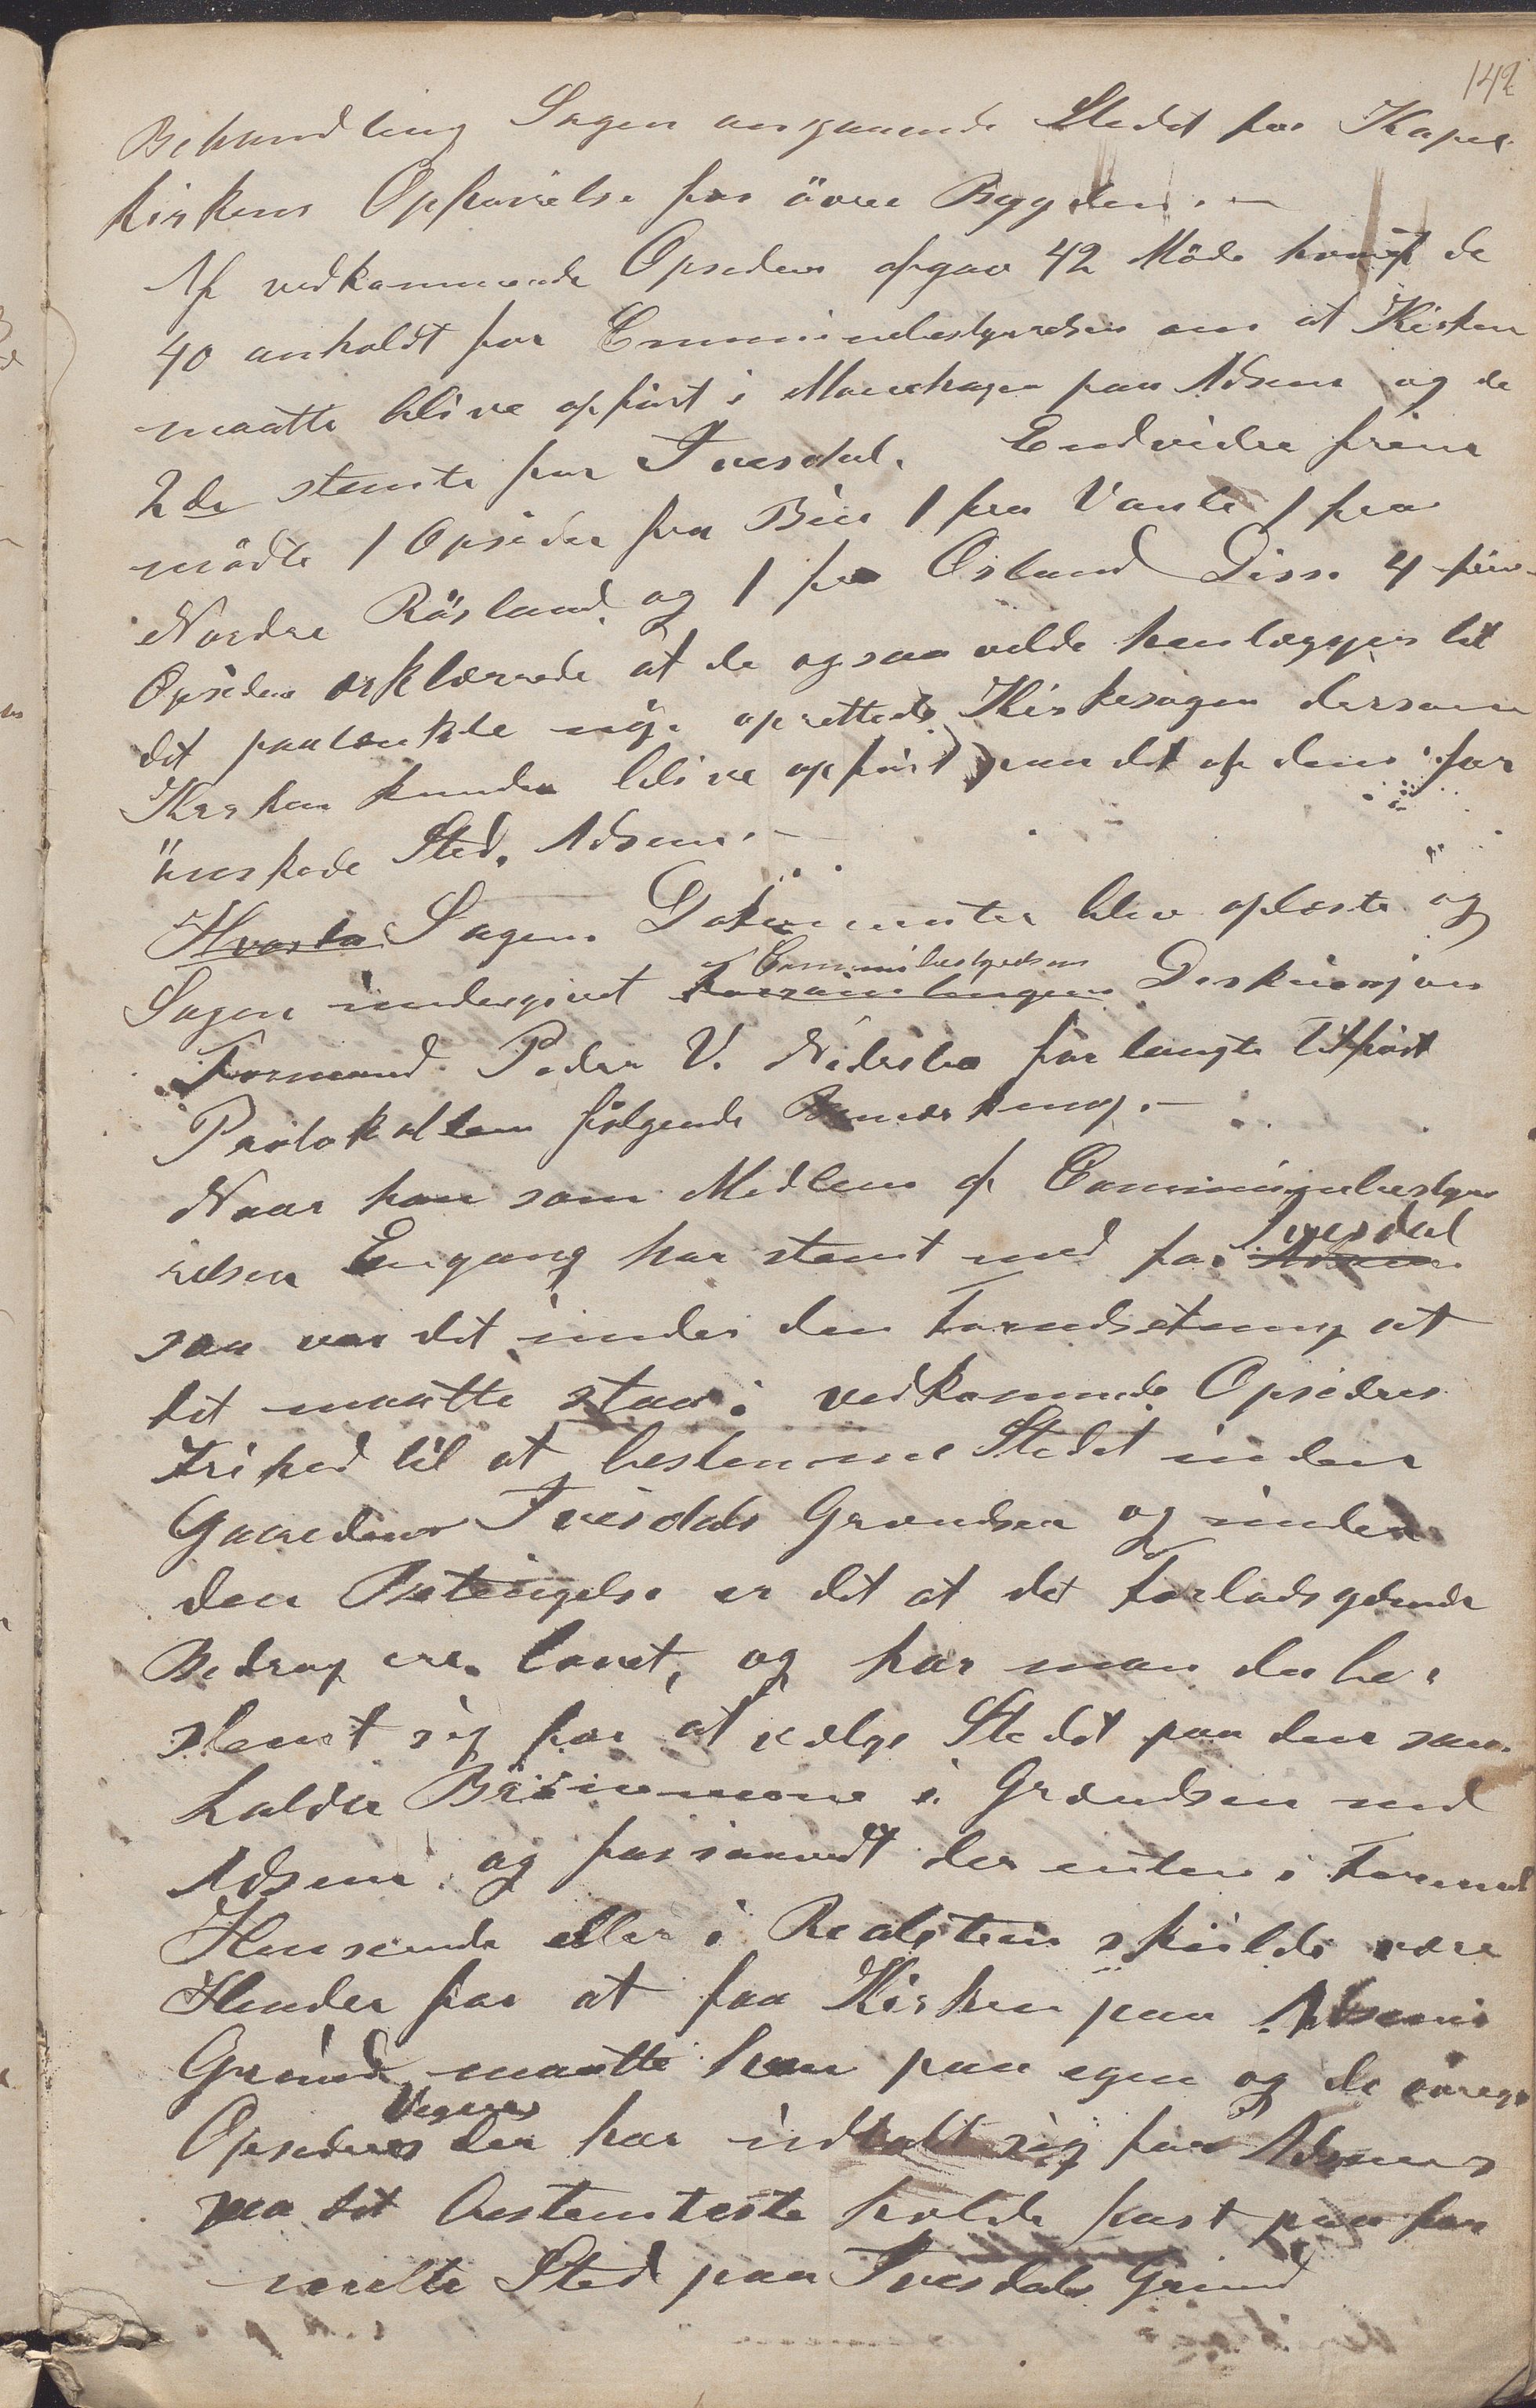 142
Behandling Sagen angaaende Stedet for Kapel
kirkens Opførelse for övre Bygden. —
Af vedkommende Opsidere afgav 42 Möde hvoraf de
40 anholdt for Communebestyrelsen om at Kirken
maatte blive opført i Monehagen paa Adsem og de
2de stemte for Tvesdal. Endvidere frem
mödte 1 Opsider fra Bue 1 fra Vante 1 fra
Nordre Rösland og 1 fra Osland Disse 4
Opsidere erklærede at de ogsaa vilde henlægges til
det paatænkte nye oprettede Kirkesogn dersom
Kirken kunde blive opført paa det af dem for
önskede Sted. Adsem. —
Hvorda Sagens Dokumenter blev oplæste og
Communebestyrelsens
Sagen undergivet Forsamlingens Diskusjon
Formand Peder V. Nedrebø forlangte tilført
Protokollen følgende Bemærkning. —
Naar han som Medlem af Communebesty
Tvesdal
relsen Engang har stemt med for Adsem
saa var det under den Forudsetning at
det maatte staa i vedkommende Opsideres
Frihed til at bestemme Stedet inden
Gaardens Tvesdals Grændser og under
den Betingelse er det at det forlods ydende
Bedrag ere lovet, og har man der be-
stemt sig for at vælge Stedet paa den saa
kaldte i Grændsen med
Adsem og forsaavidt der enten i Formel
Henseende eller i Realiteten skulde være
Hinder for at faa Kirken paa Adsems
Grund maatte han paa egen og de övrige
Vegne
Opsideres der har udtalt sig for Adsem
paa det bestemteste holde fast paa for
nevnte Sted paa Tvesdals Grund